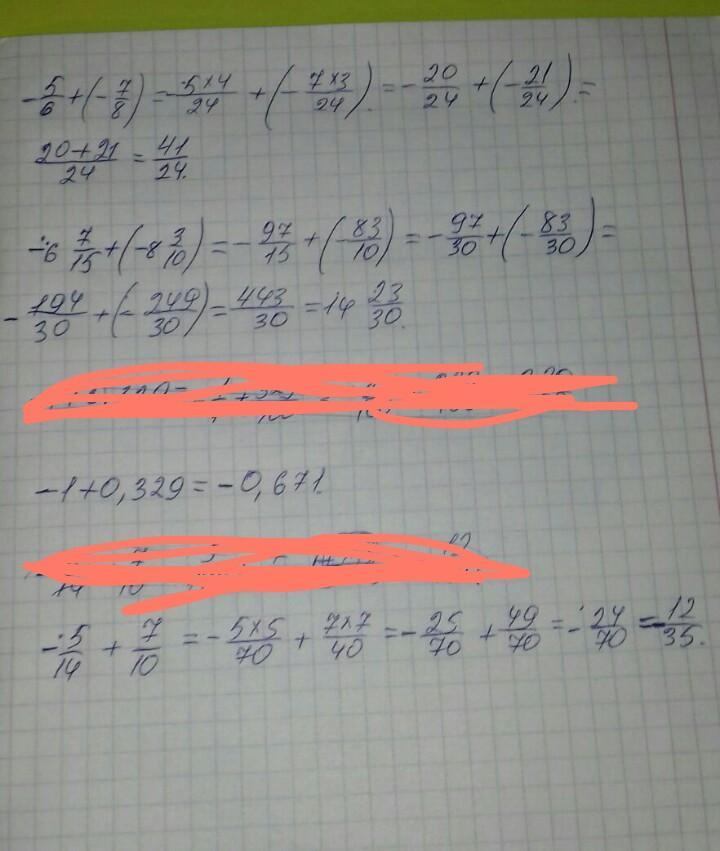 -5/6+(-7/8)=-5×4/24+(-7×3/24).=-20/24+(-21/24).=
20+21/24=41/24.
-6 7/15+(-8 3/10)=-97/15+(-83/10)=-97/30+(-83/30)=
-194/30+(-249/30)=443/30=14 23/30.
-1+0,329=-0,671.
-5/14+7/10=-5×5/70+7×7/40=-25/70+49/70=-24/70=-12/35.